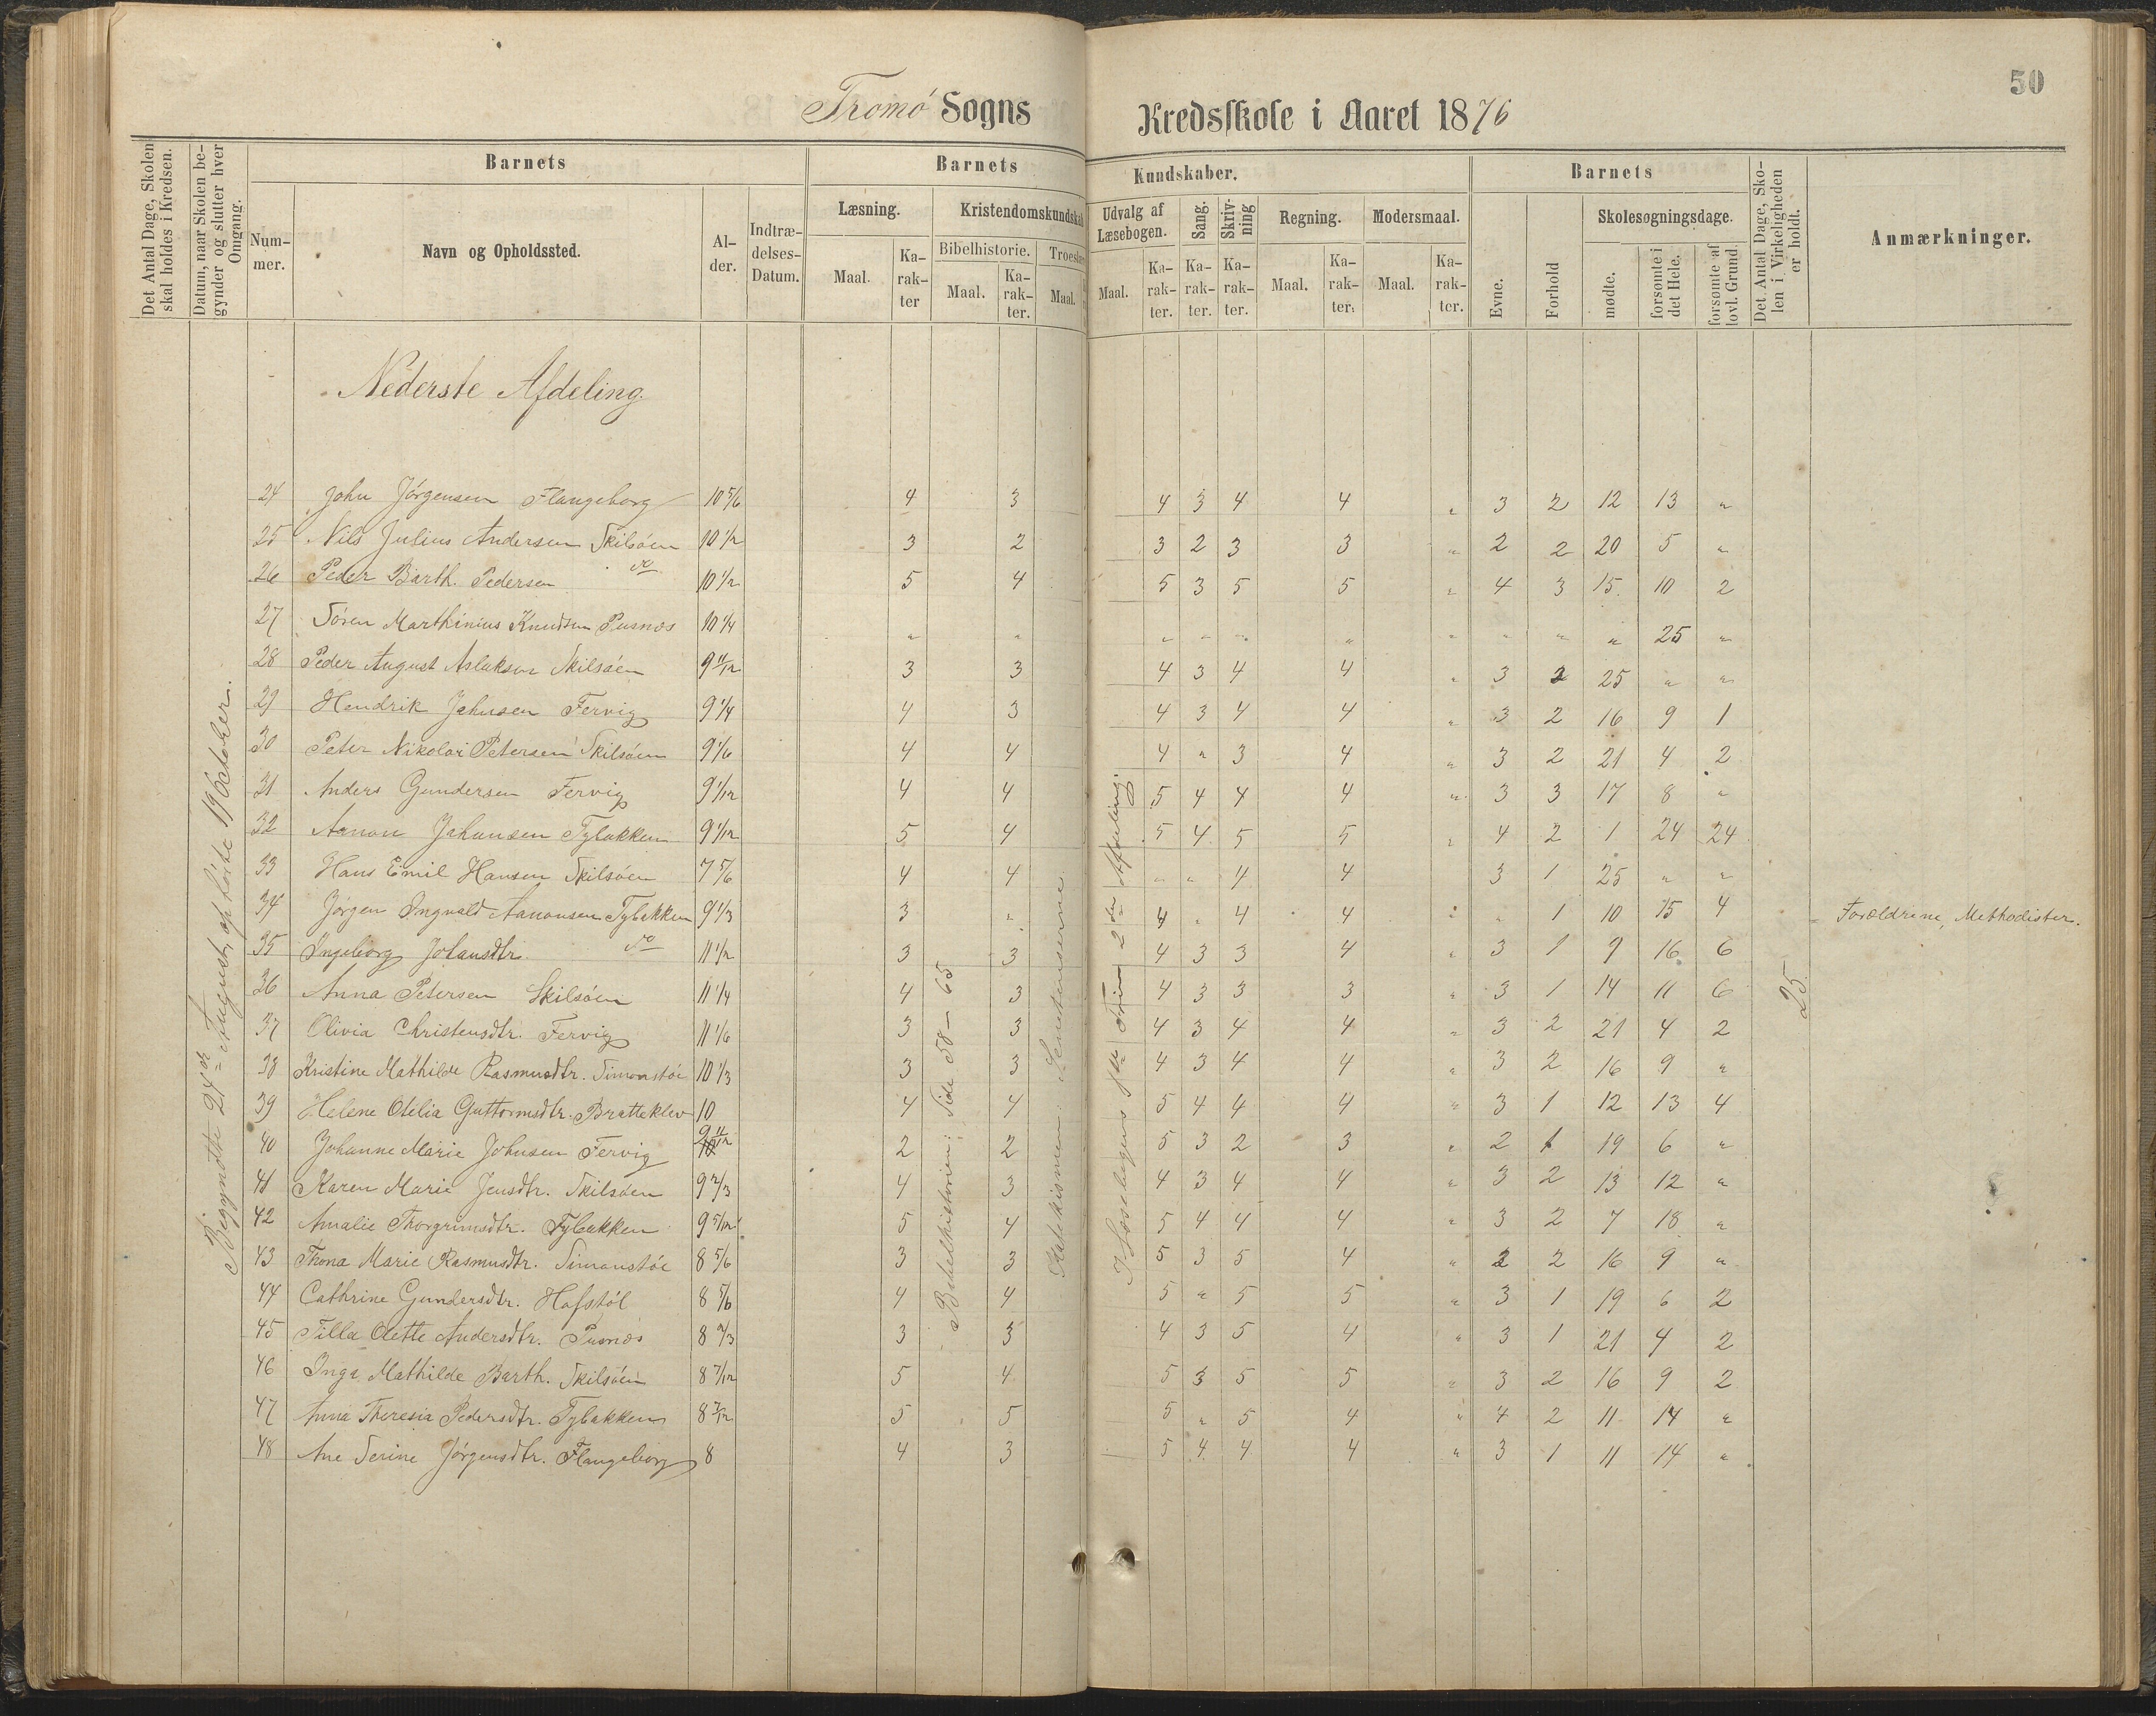 50
Tromö Sogns Kredsskole i Aaret 1876
Det Antal Dage, Skolen skal holdes i Kredsen.
Datum, naar Skolen begynder og slutter hver Omgang.
Barnets
Nummer.
Navn og Opholdssted.
Alder.
Indtrædelses-Datum.
Barnets Kundskaber.
Læsning.
Maal.
Karakter
Kristendomskundskab
Bibelhistorie.
Maal.
Karakter.
Troeslære
Maal.
Udvalg af Læsebogen.
Maal.
Karakter.
Sang.
Karakter.
Skrivning
Karakter.
Regning.
Maal.
Karakter.
Modersmaal.
Maal.
Karakter.
Barnets
Evne.
Forhold
Skolesøgningsdage.
mødte.
forsømte i det Hele.
forsømte af lovl. Grund.
Det Antal Dage, Skolen i Virkeligheden er holdt.
Anmærkninger.
Nederste Afdeling.
Begyndte 24de August, ophörte 19 October.
Bibelhistorien: Side 58 – 65
25
24 John Jörgensen Flangeborg 10 5/6 4 3 4 3 4 4 " 3 2 12 13 "
25 Nils Julius Andersen Skilsöen 10 1/2 3 2 3 2 3 3 " 2 2 20 5 "
26 Peder Barth. Pedersen do 10 1/2 5 4 5 3 5 5 " 4 3 15 10 2
27 Sören Marthinius Knudsen Pusnæs 10 1/4 " " " " " " " " " " 25 "
28 Peder August Aslaksen Skilsöen 9 11/12 3 3 4 3 4 4 " 3 2 25 " "
29 Hendrik Johnsen Fervig 9 1/4 4 3 4 3 4 4 " 3 2 16 9 1
30 Peter Nikolai Petersen Skilsöen 9 1/6 4 4 4 " 3 4 " 3 2 21 4 2
31 Anders Gundersen Fervig 9 1/12 4 4 5 4 4 4 " 3 3 17 8 "
32 Aanon Johansen Tybakken 9 1/12 5 4 5 4 5 5 " 4 2 1 24 24
33 Hans Emil Hansen Skilsöen 7 5/6 4 4 " " 4 4 3 1 25 " "
34 Jörgen Ingvald Aanonsen Tybakken 9 1/3 3 " 4 " 4 4 " " 1 10 15 4 Forældrene, Methodister.
35 Ingeborg Johansdtr. do 11 1/2 3 3 4 3 3 4 " 3 1 9 16 6
36 Anna Petersen Skilsöen 11 1/4 4 3 4 3 3 3 " 3 1 14 11 6
37 Olivia Christensdtr. Fervig 11 1/6 3 3 4 3 4 4 " 3 2 21 4 2
38 Kristine Mathilde Rasmusdtr. Simonstöe 10 1/3 3 3 4 3 4 4 " 3 2 16 9 "
39 Helene Otilia Guttormsdtr. Bratteklev 10 4 4 5 4 4 4 " 3 1 12 13 4
40 Johanne Marie Johnsen Fervig 9 11/12 2 2 5 3 2 3 " 2 1 19 6 "
41 Karen Marie Jensdtr. Skilsöen 9 2/3 4 3 4 3 4 4 " 3 2 13 12 "
42 Amalie Thorgrimsdtr. Tybakken 9 5/12 5 4 5 4 4 4 " 3 2 7 18 "
43 Thona Marie Rasmusdtr. Simonstöe 8 5/6 3 3 5 3 5 4 " 2 2 16 9 "
44 Cathrine Gundersdtr. Hofstöl 8 5/6 4 4 5 " 5 5 " 3 1 19 6 2
45 Tilla Olette Andersdtr. Pusnæs 8 2/3 3 3 4 3 5 4 " 3 1 21 4 2
46 Inga Mathilde Barth. Skilsöen 8 7/12 5 4 5 3 5 5 " 3 2 16 9 2
47 Anna Theresia Pedersdtr. Tybakken 8 7/12 5 5 5 " 5 4 " 4 2 11 14 "
48 Ane Serine Jörgensdtr. Flangeborg 8 4 3 5 4 4 4 " 3 1 11 14 "
Katekismen: Sententserne
I Læsebogens 1ste Trin 2den Afdeling.